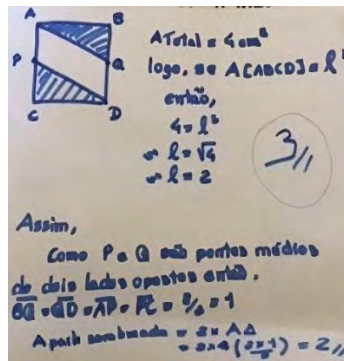 A B
P Q
C D
A Total = 4 cm²
logo, se A[ABCD] = l²
então,
4 = l²
l = √4
l = 2
3//
Assim,
Como P e Q são pontos médios
de dois lados opostos então.
BQ = QD = AP = PC = 2/2 = 1
A parte sombreada = 2 × A△